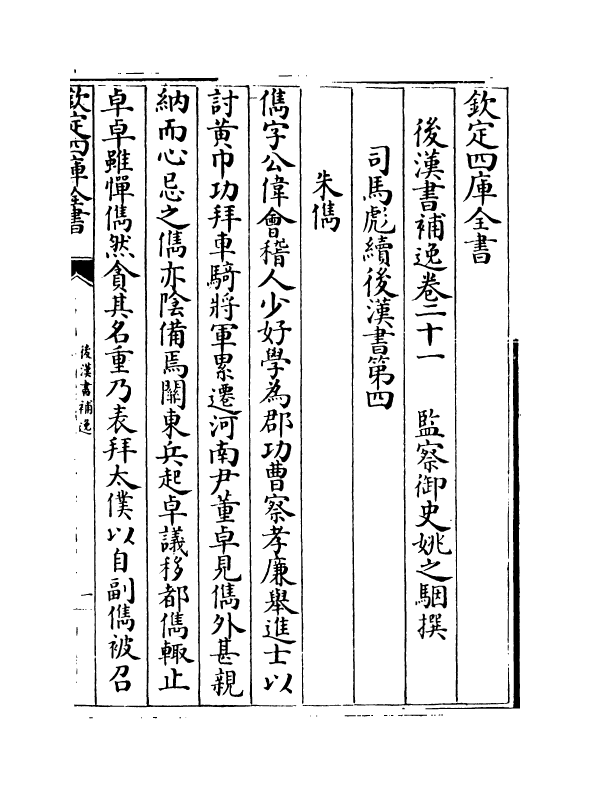 欽定四庫全書
後漢書補逸卷二十一　監察御史姚之駰撰
司馬彪續後漢書第四
朱儁
儁字公偉會稽人少好學為郡功曹察孝廉舉進士以
討黃巾功拜車騎將軍累遷河南尹董卓見儁外甚親
納而心忌之儁亦陰備焉關東兵起卓議移都儁輒止
卓卓雖憚儁然貪其名重乃表拜太僕以自副儁被召
欽定四庫全書
後漢書補逸
一